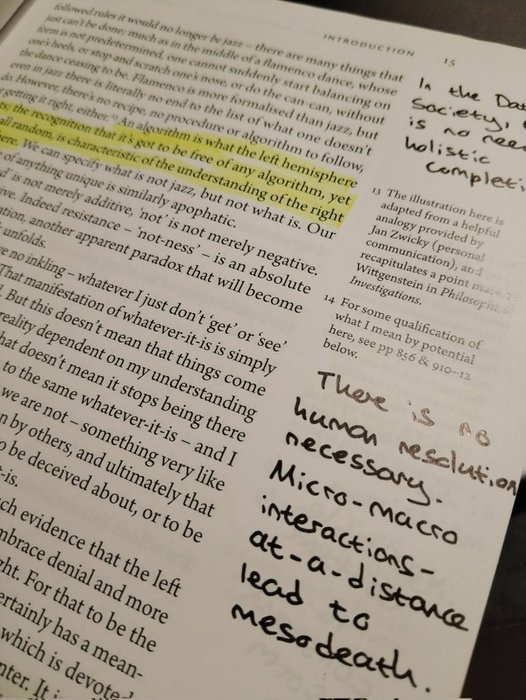 INTRODUCTION 15
followed rules it would no longer be jazz – there are many things that
just can't be done; much as in the middle of a flamenco dance, whose
form is not predetermined, one cannot suddenly start balancing on
one's heels, or stop and scratch one's nose, or do the can-can, without
the dance ceasing to be. Flamenco is more formalised than jazz, but
even in jazz there is literally no end to the list of what one doesn't
do. However, there's no recipe, no procedure or algorithm to follow,
getting it right, either. An algorithm is what the left hemisphere
the recognition that it's got to be free of any algorithm, yet
all random, is characteristic of the understanding of the right
We can specify what is not jazz, but not what is. Our
of anything unique is similarly apophatic.
is not merely additive, 'not' is not merely negative.
Indeed resistance – 'not-ness' – is an absolute
another apparent paradox that will become
unfolds.
no inkling – whatever I just don't 'get' or 'see'
That manifestation of whatever-it-is is simply
But this doesn't mean that things come
reality dependent on my understanding
that doesn't mean it stops being there
to the same whatever-it-is – and I
we are not – something very like
by others, and ultimately that
be deceived about, or to be
evidence that the left
embrace denial and more
For that to be the
certainly has a mean-
which is devoted
It
In the
Society,
is no
holistic
13 The illustration here is
adapted from a helpful
analogy provided by
Jan Zwicky (personal
communication), and
recapitulates a point
Wittgenstein in
Investigations.
14 For some qualification of
what I mean by potential
here, see pp 856 & 910–12
below.
There is no
human resolution
necessary.
Micro-macro
interactions-
at-a-distance
lead to
mesodeath.